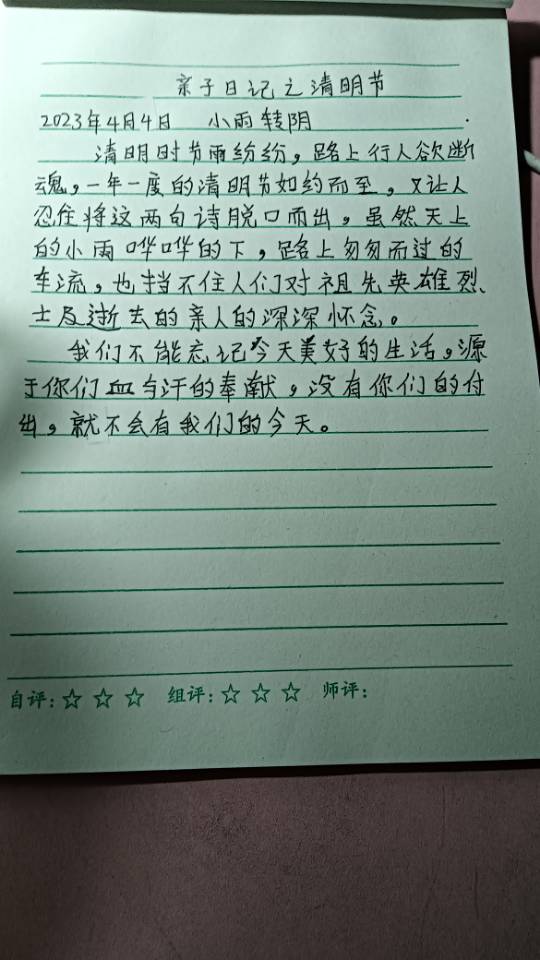 亲子日记之清明节
2023年4月4日 小雨转阴
清明时节雨纷纷，路上行人欲断
魂，一年一度的清明节如约而至，又让人
忍住将这两句诗脱口而出，虽然天上
的小雨哗哗的下，路上匆匆而过的
车流，也挡不住人们对祖先英雄烈、
士及逝去的亲人的深深怀念。
我们不能忘记今天美好的生活，源
于你们血与汗的奉献，没有你们的付
出，就不会有我们的今天。
自评：☆ ☆ ☆ 组评：☆ ☆ ☆ 师评：